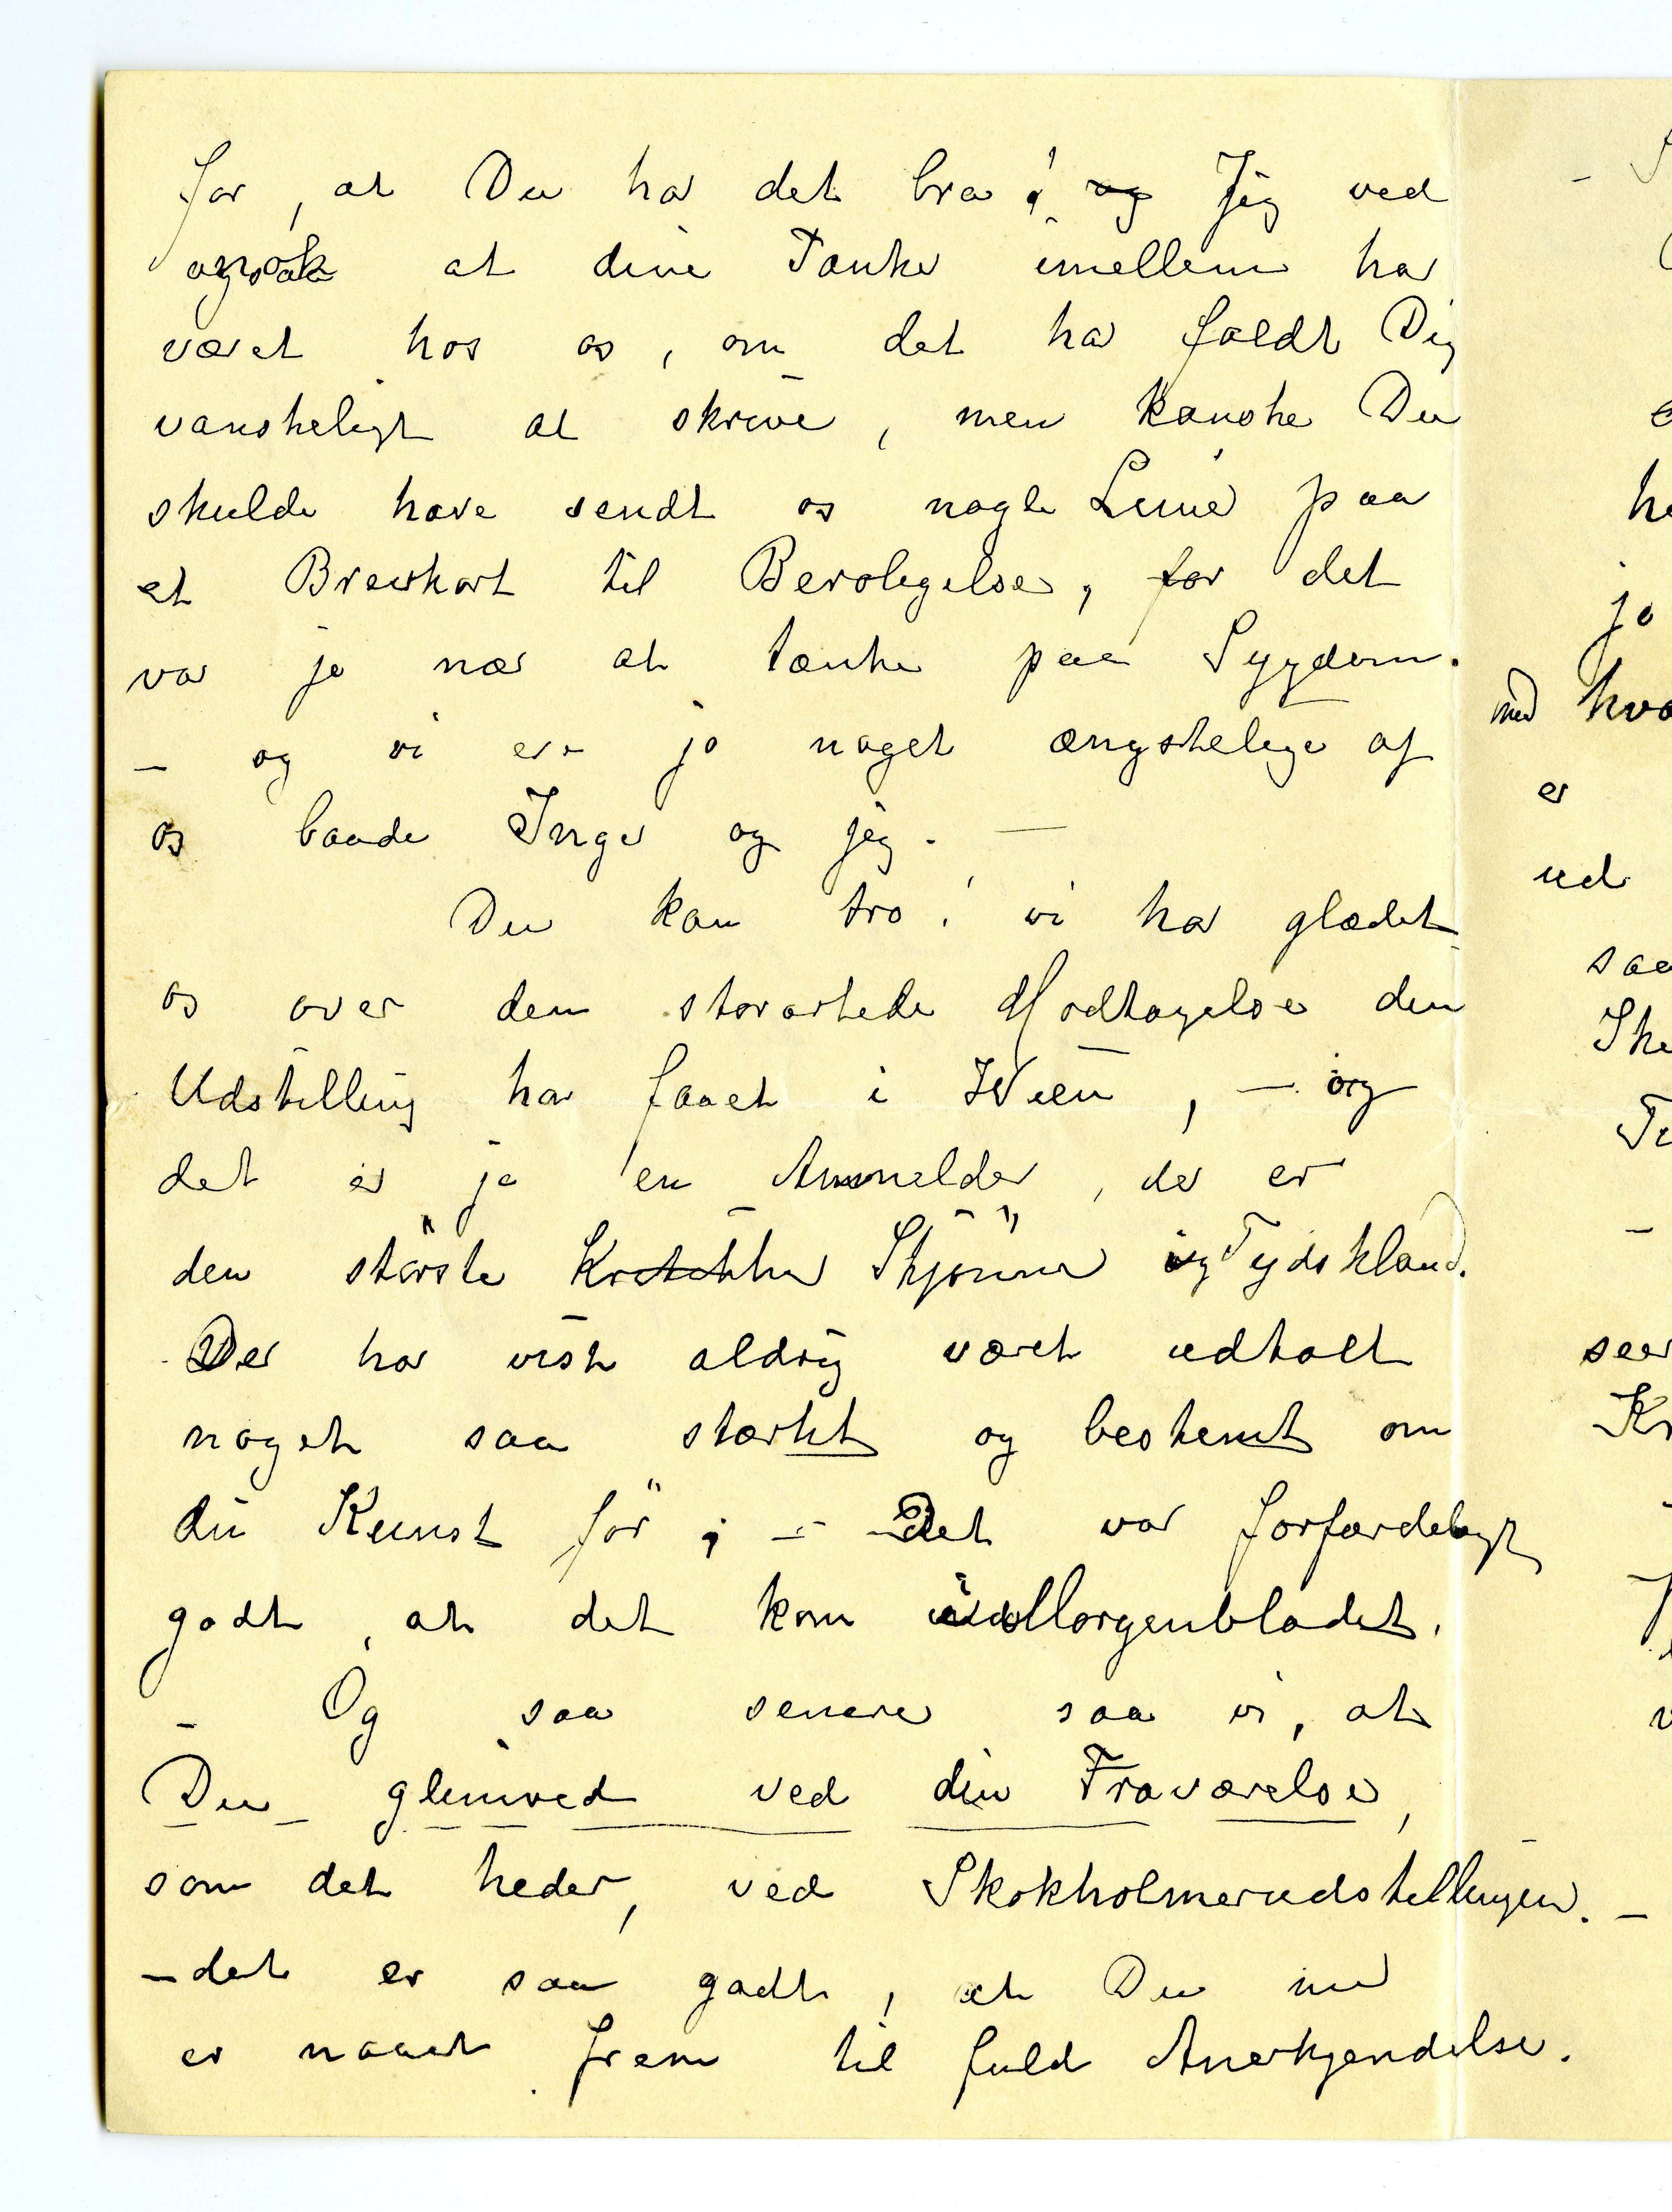 for, at Du har det bra; og Jeg ved
nok at dine Tanker imellem har
været hos os, om det har faldt Dig
vanskeligt at skrive, men kanske Du
skulde have sendt os nogle Linier paa
et Brevkort til Beroligelse, for det
var jo nær at tænke paa Sygdom.
– og vi ere jo noget ængstelige af
os baade Inger og jeg. –
Du kan tro! vi har glædet
os over den storartede Modtagelse den
Udstilling har faaet i Wien, – og
det er jo en Anmelder, der er
den störste Kritikker Skjönner i Tydskland.
Der har vist aldrig været udtalt
noget saa stærkt og bestemt om
din Kunst för; – Det var forfærdeligt
godt, at det kom i Morgenbladet.
– Og saa senere saa vi, at
Du glimred ved din Fraværelse,
som det heder, ved Skokholmerudstillingen. –
– det er saa godt, at Du nu
er naaet frem til fuld Anerkjendelse.
jo
med
er
ud